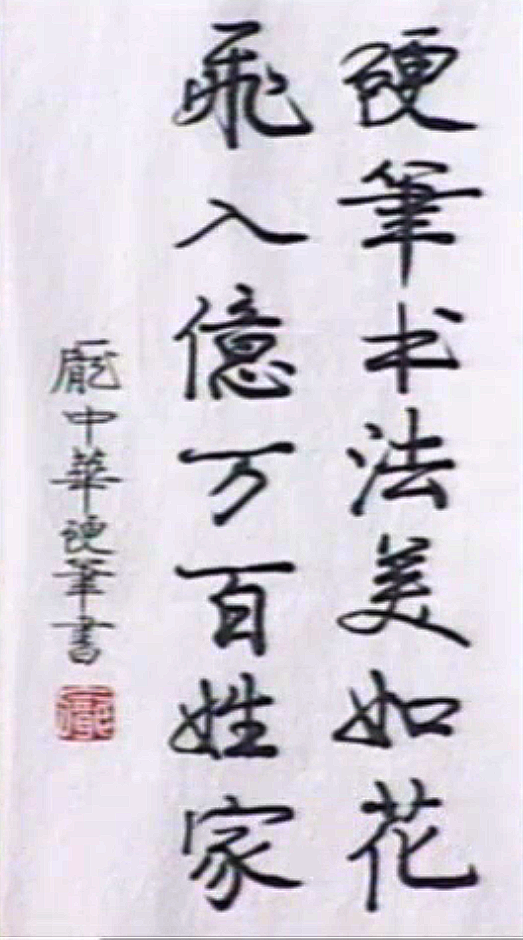 硬筆书法美如花
飛入億万百姓家
龐中華硬筆書